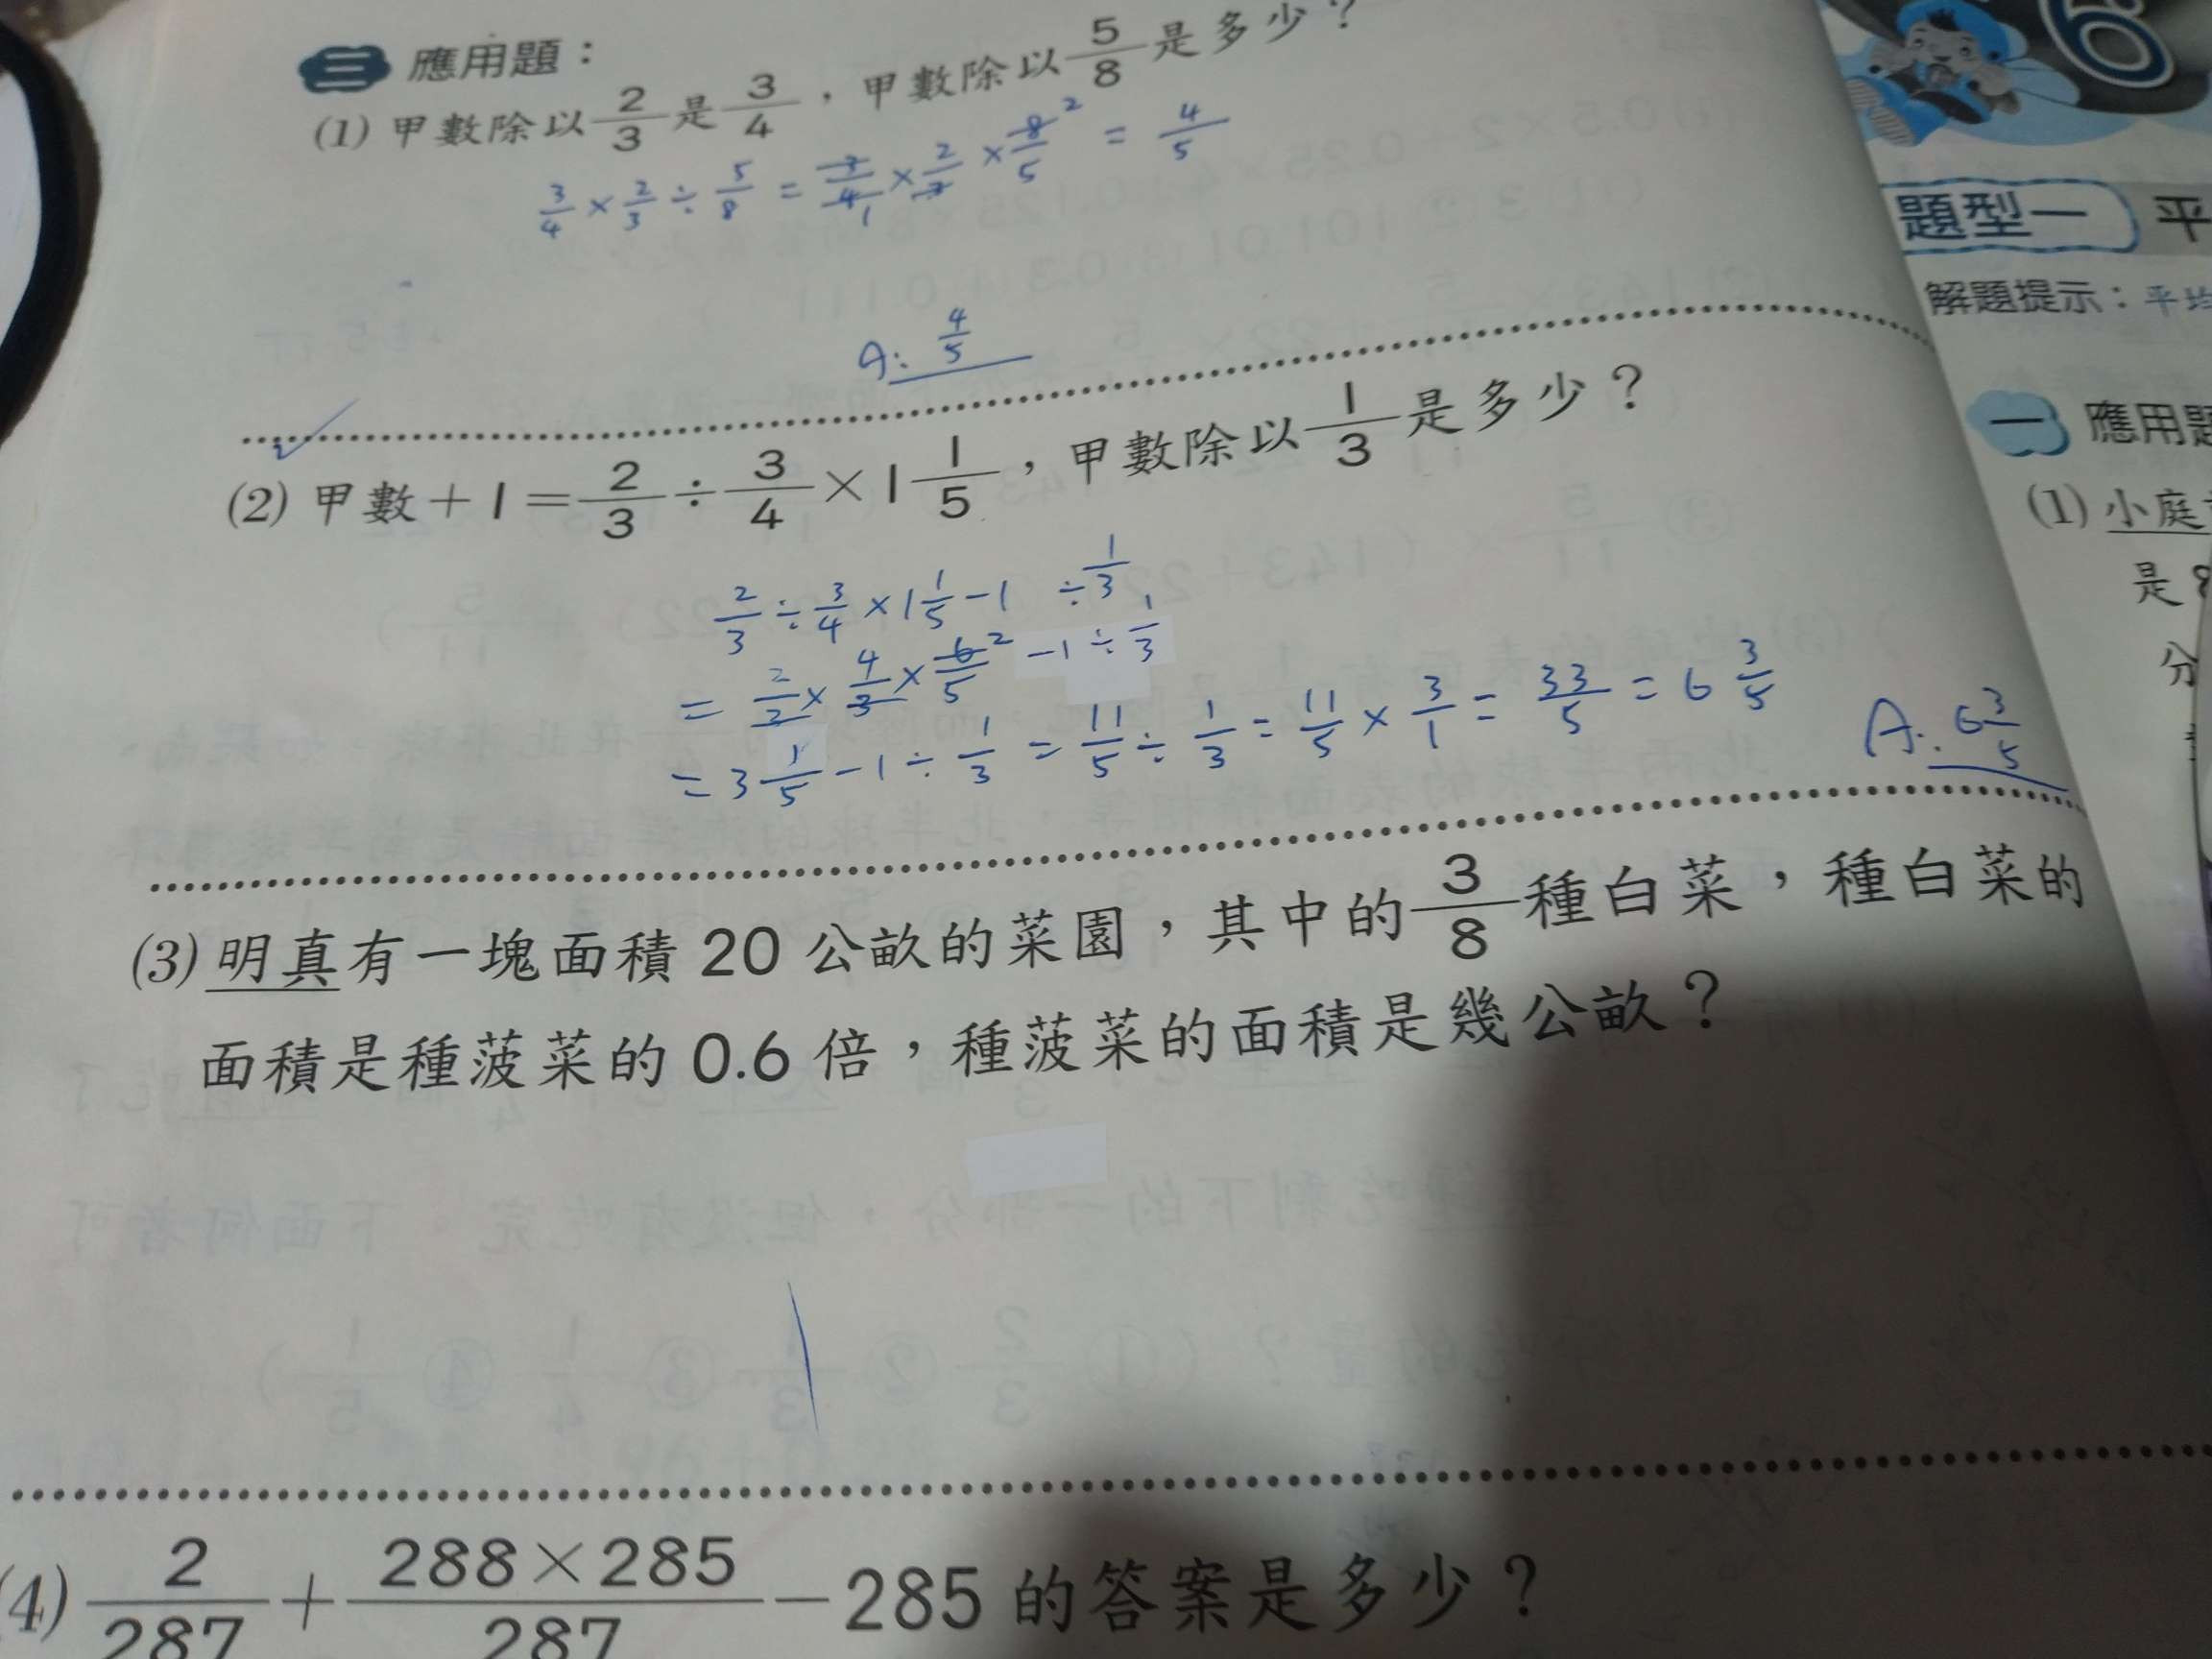 三 應用題：
(1) 甲數除以2/3是3/4，甲數除以5/8是多少？
3/4 × 2/3 ÷ 5/8 = 3/4 1 × 2/3 × 8/5 2 = 4/5
A: 4/5
(2) 甲數＋1＝2/3÷3/4×1 1/5，甲數除以1/3是多少？
2/3 ÷ 3/4 × 1 1/5 - 1 ÷ 1/3
= 2/3 × 4/3 × 6/5 2 - 1 ÷ 1/3
= 3 1/5 - 1 ÷ 1/3 = 11/5 ÷ 1/3 = 11/5 × 3/1 = 33/5 = 6 3/5
A: 6 3/5
(3) 明真有一塊面積 20 公畝的菜園，其中的3/8種白菜，種白菜的
面積是種菠菜的 0.6 倍，種菠菜的面積是幾公畝？
(4) 2/287＋288×285/287－285 的答案是多少？
6
題型一 平
解題提示：平均
一 應用題
(1) 小庭
是 8
分